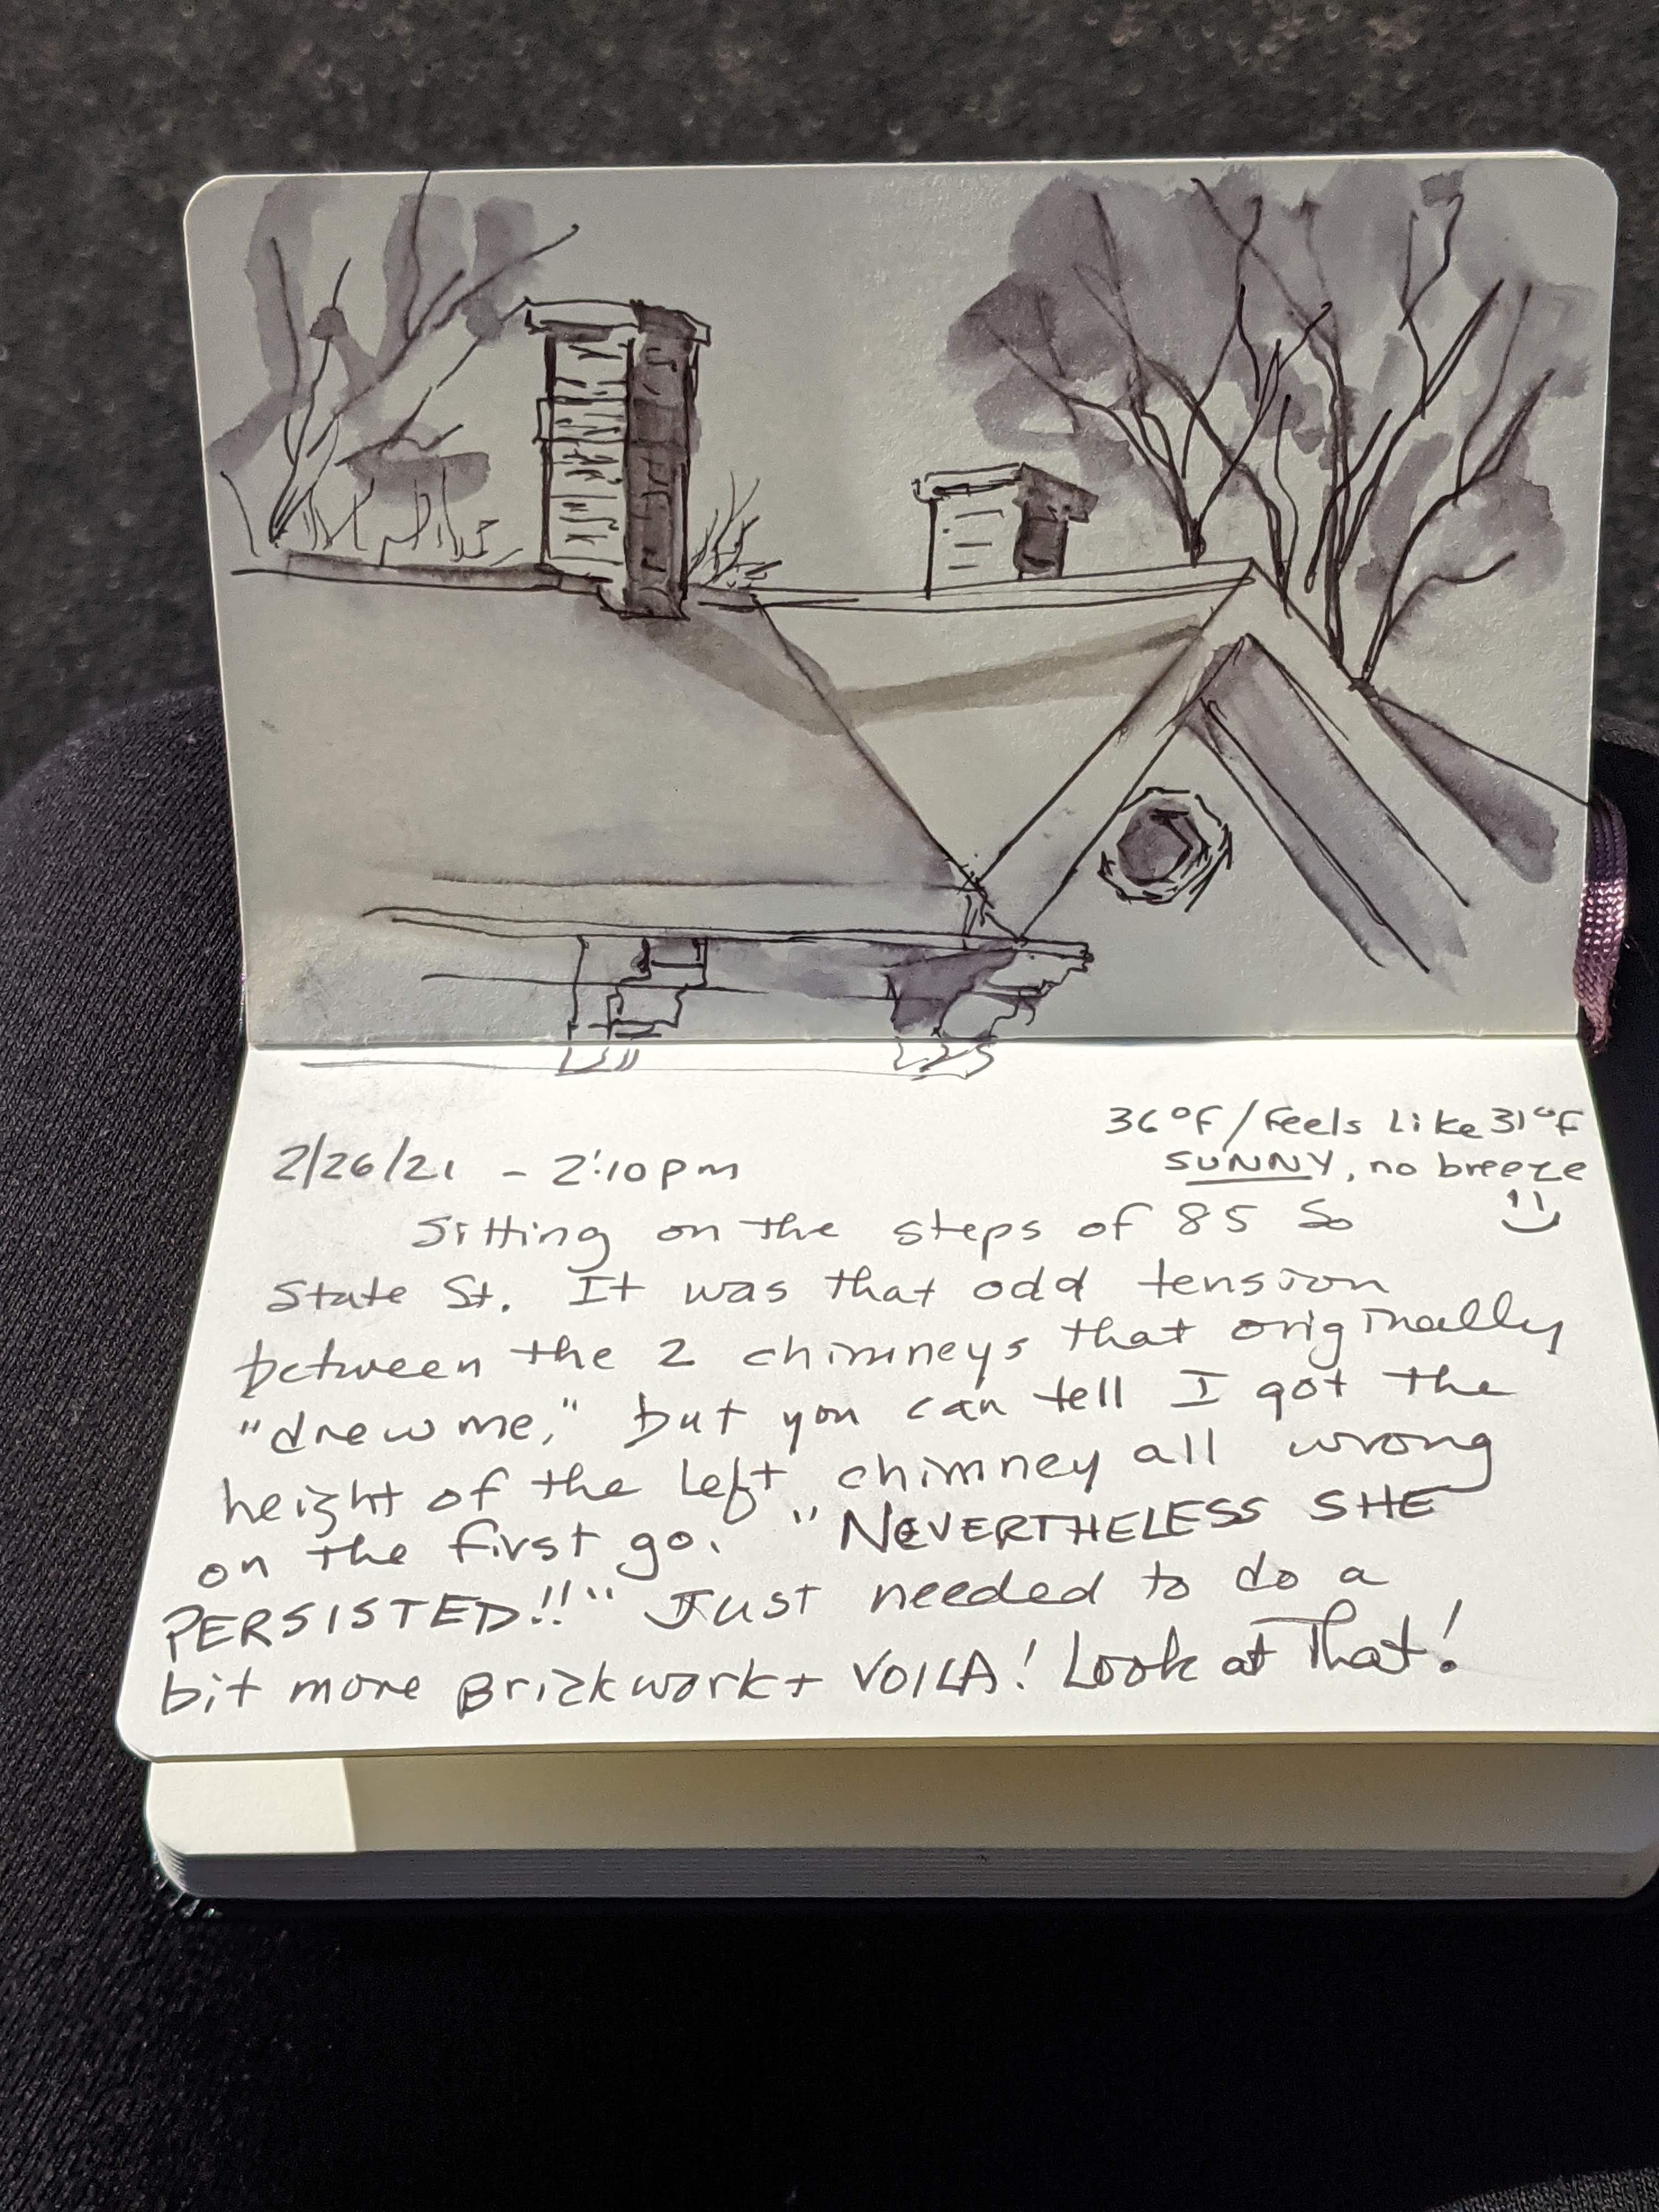 36°F/Feels Like 31°F
2/26/21 - 2:10pm
SUNNY, no breeze
Sitting on the steps of 85 So
State St. It was that odd tension
between the 2 chimneys that originally
"drew me," but you can tell I got the
height of the left chimney all wrong
on the first go. "NEVERTHELESS SHE
PERSISTED!!" Just needed to do a
bit more Brickwork + VOILA! Look at That!